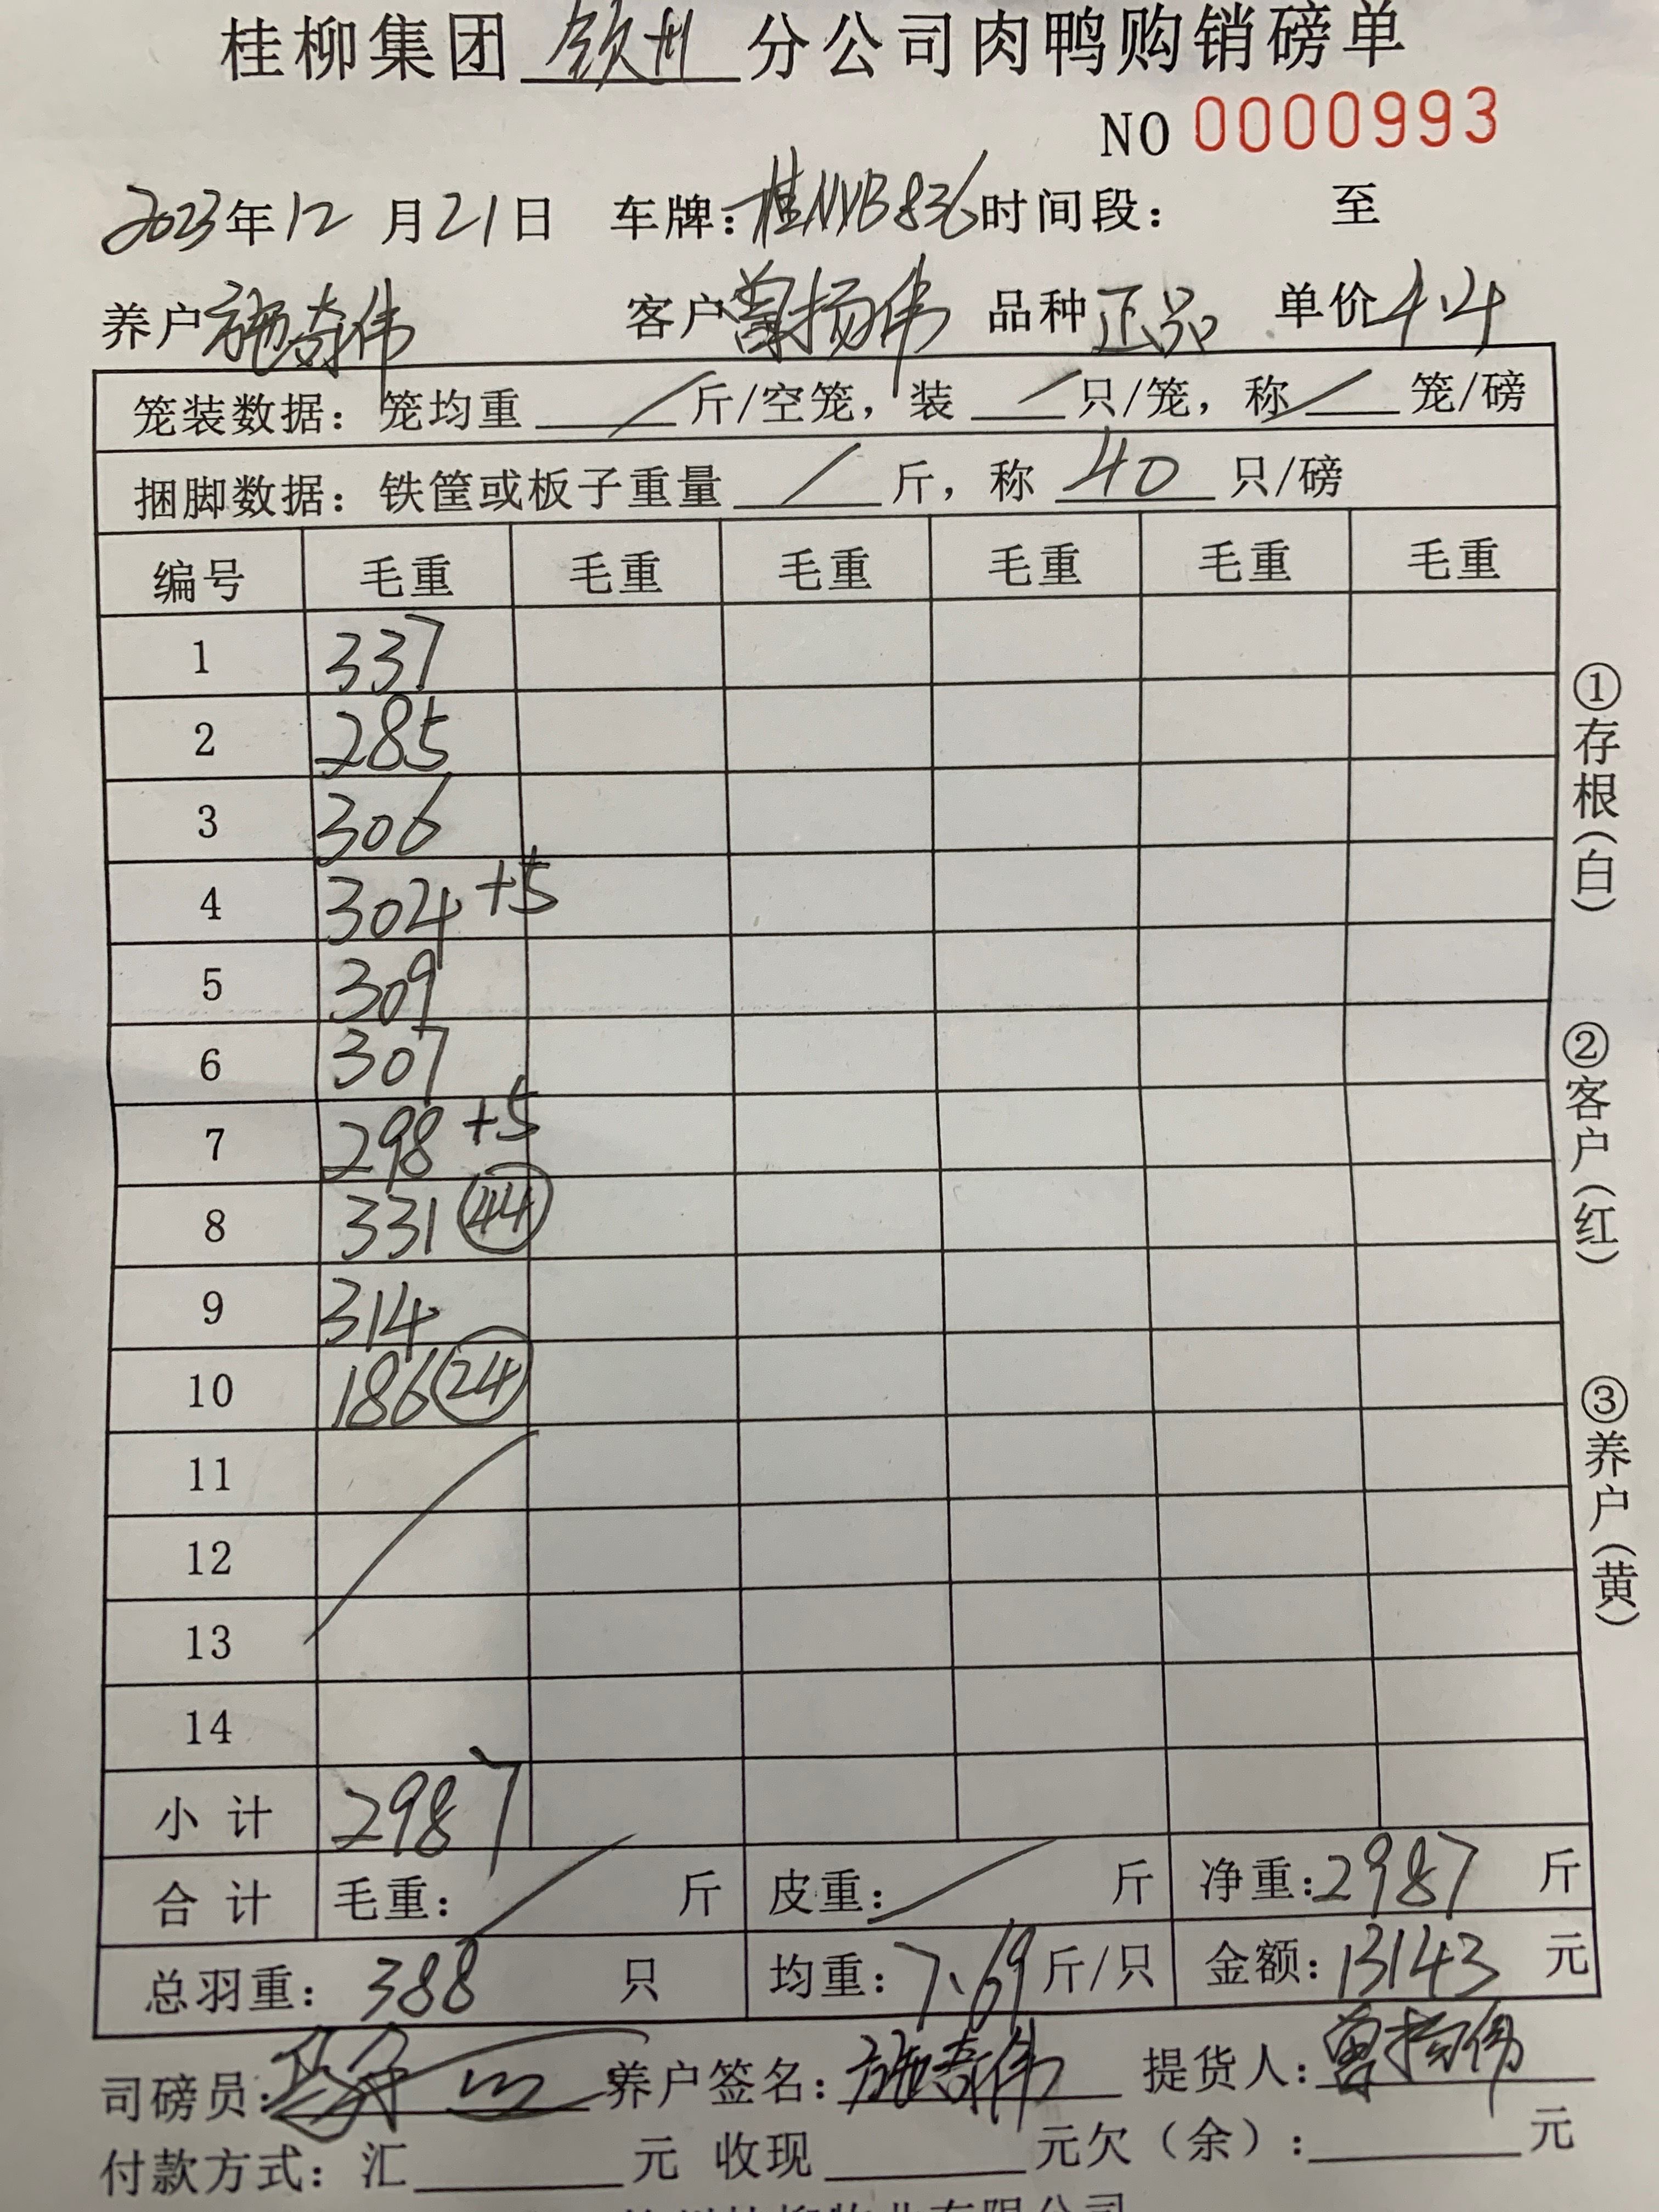 桂柳集团 钦州 分公司肉鸭购销磅单
NO 0000993
2023年12月21日 车牌:桂NYB836 时间段: 至
养户 施奇伟 客户 曾扬伟 品种 正品 单价 4.4
笼装数据: 笼均重 / 斤/空笼, 装 / 只/笼, 称 / 笼/磅
捆脚数据: 铁筐或板子重量 / 斤, 称 40 只/磅
编号 毛重 毛重 毛重 毛重 毛重 毛重
1 337
2 285
3 306
4 304 +5
5 309
6 307
7 298 +5
8 331 44
9 314
10 186 24
11
12
13
14
小计 2987
合计 毛重: / 斤 皮重: / 斤 净重:2987 斤
总羽重: 388 只 均重: 7.69 斤/只 金额: 13143 元
司磅员: 养户签名: 施奇伟 提货人: 曾扬伟
付款方式: 汇 元 收现 元欠(余): 元
①存根(白)
②客户(红)
③养户(黄)